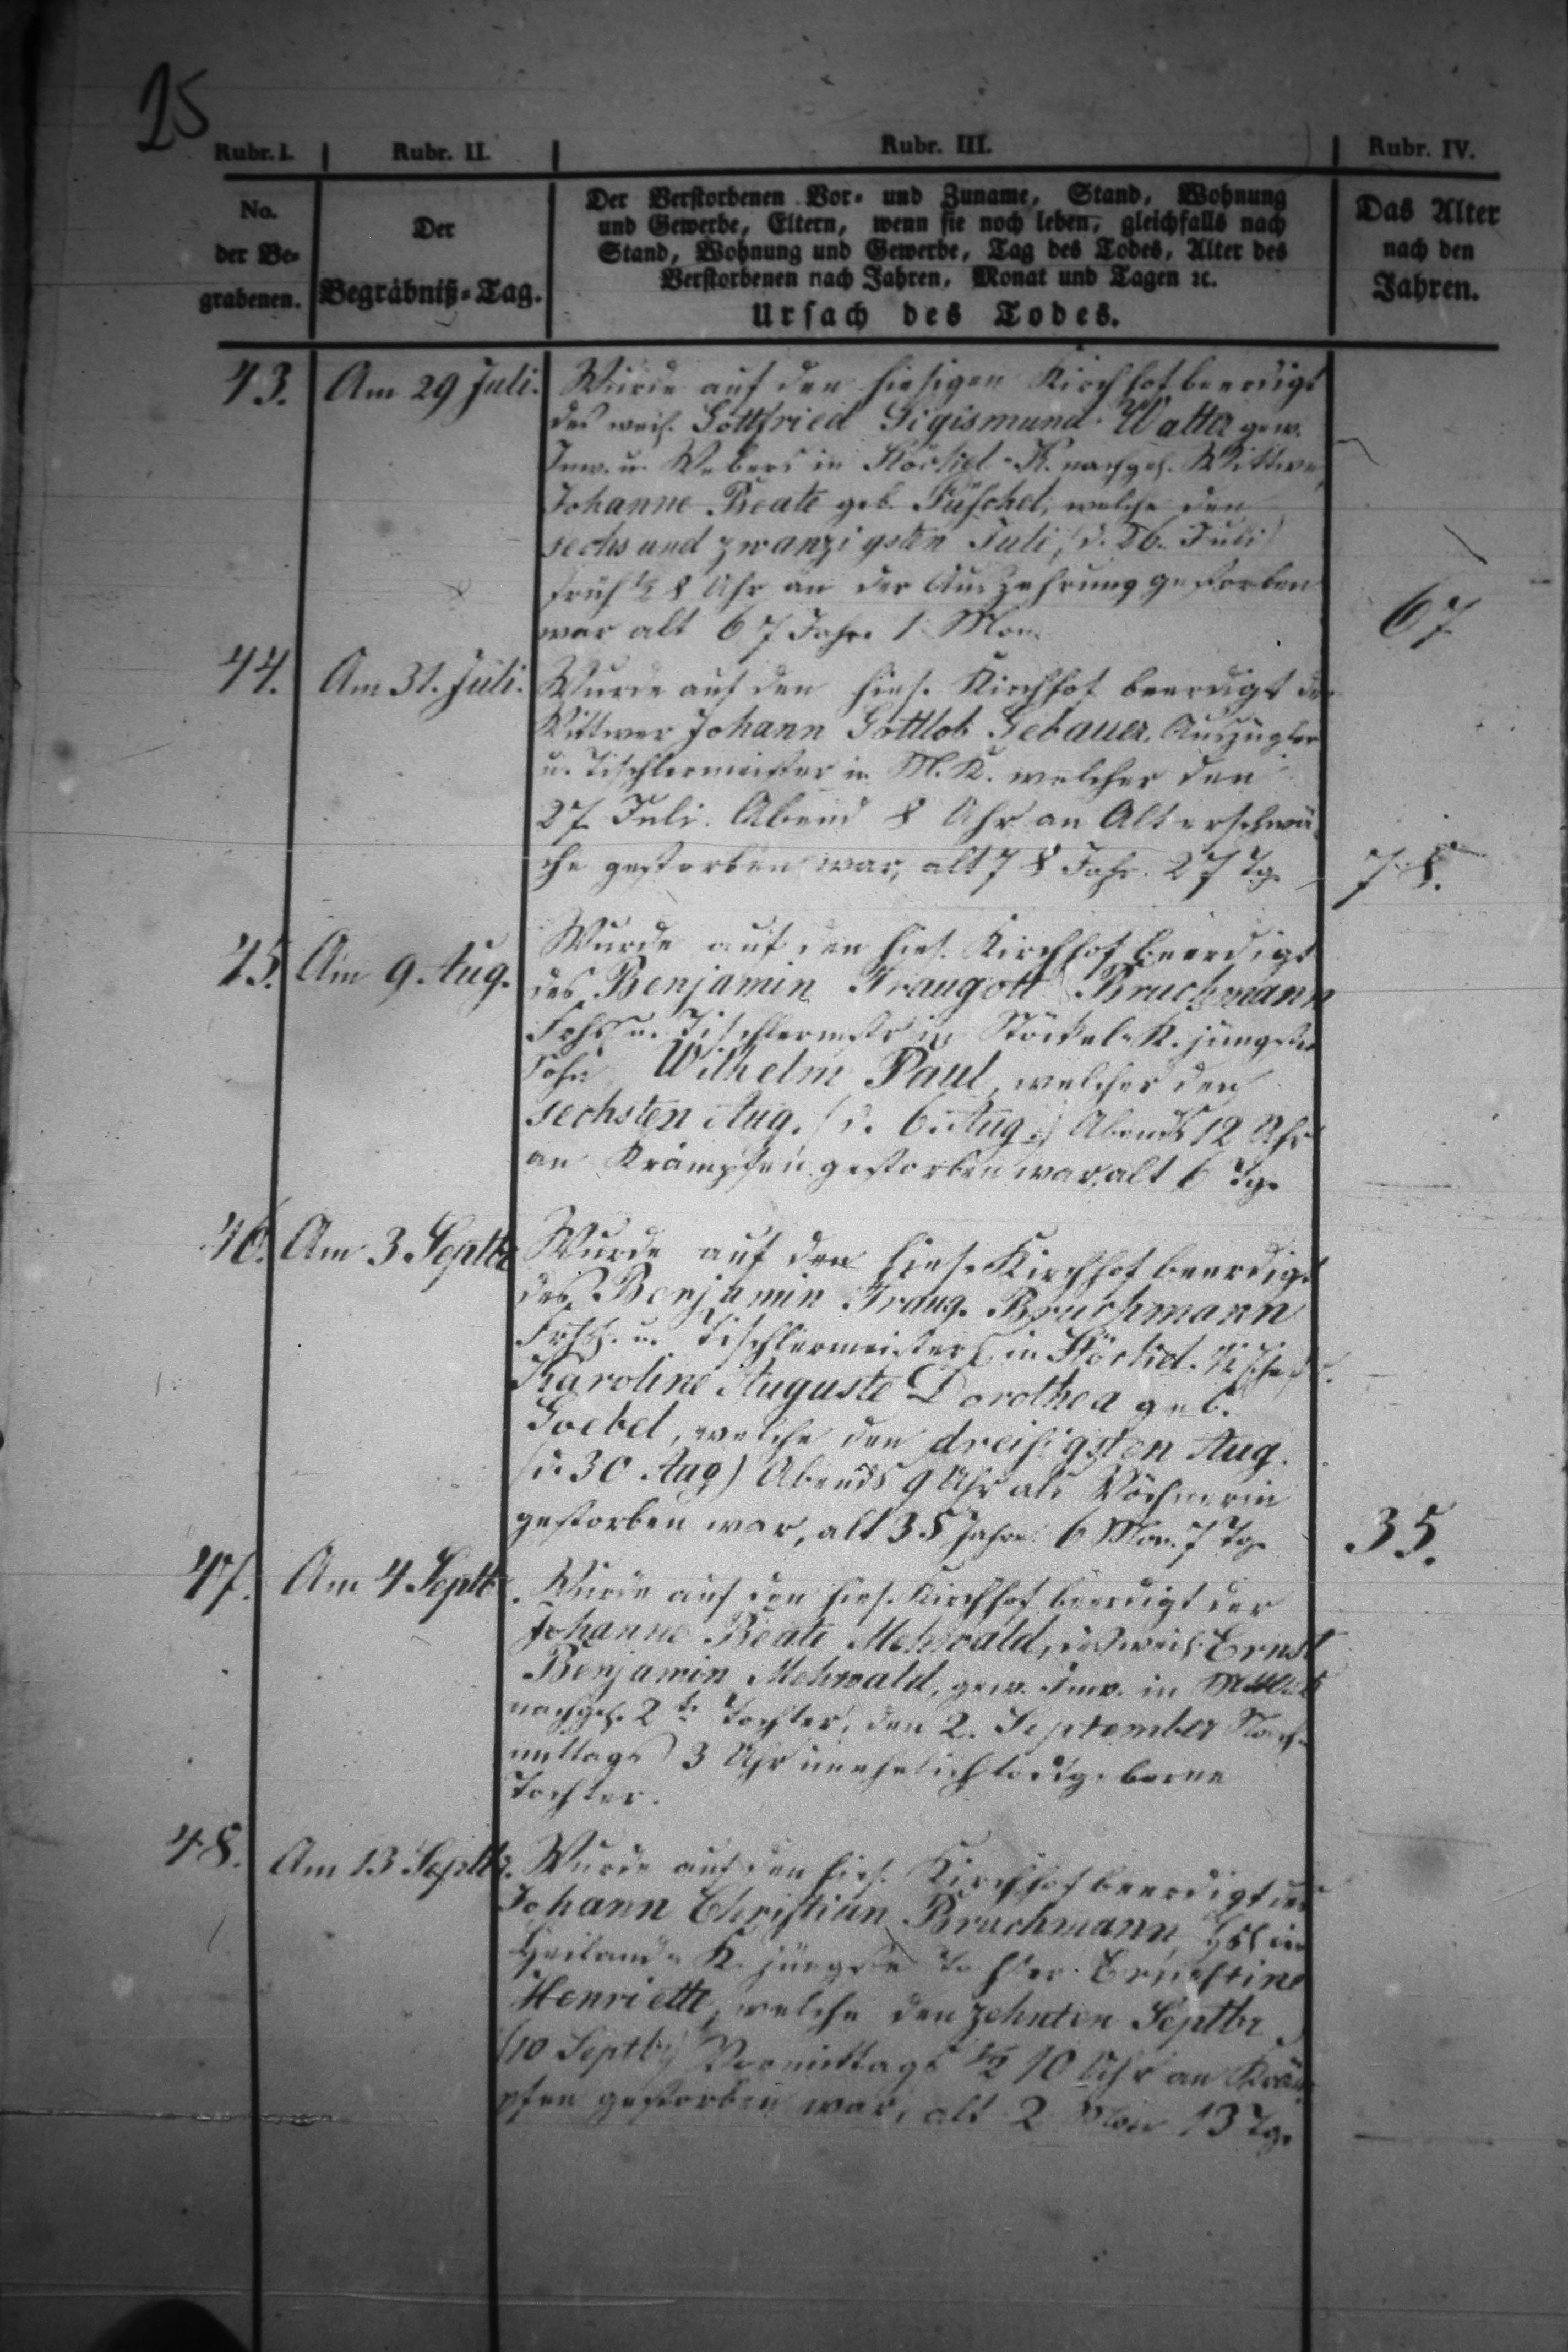 25
Rubr. I. Rubr. II. Rubr. III. Rubr. IV.
No.
der Be-
grabenen.
Der
Begräbniß-Tag.
Der Verstorbenen Vor- und Zuname, Stand, Wohnung
und Gewerbe, Eltern, wenn sie noch leben, gleichfalls nach
Stand, Wohnung und Gewerbe, Tag des Todes, Alter des
Verstorbenen nach Jahren, Monat und Tagen ꝛc.
Ursach des Todes.
Das Alter
nach den
Jahren.
43. Am 29 Juli. Wurde auf den hiesigen Kirchhof beerdigt
des weil. Gottfried Sigismund Walter gew.
Inw. u. Webers in Stöckel-K. nachgel. Wittwe,
Johanne Beate geb. Püschel, welche den
sechs und zwanzigsten Juli, (d. 26. Juli)
früh ½ 8 Uhr an der Auszehrung gestorben
war alt 67 Jahre 1 Mon. 67
44. Am 31. Juli. Wurde auf den hies. Kirchhof beerdigt der
Wittwer Johann Gottlob Gebauer, Auszügler
u. Tischlermeister in M. K. welcher den
27. Juli. Abend 8 Uhr an Alterschwä-
che gestorben war, alt 78 Jahr. 27 Tg. 78.
45. Am 9 Aug. Wurde auf den hies. Kirchhof beerdigt
des Benjamin Traugott Bruchmann
u. Tischlermstr in Stöckel-K. jüngster
Sohn, Wilhelm Paul, welcher den
sechsten Aug. (d. 6. Aug.) Abends 12 Uhr
an Krämpfen gestorben war, alt 6 Tg.
46. Am 3 Septbr Wurde auf den hies. Kirchhof beerdigt
des Benjamin Traug. Bruchmann
u. Tischlermeisters in Stöckel-K.
Karoline Auguste Dorothea geb.
Goebel, welche den dreißigsten Aug.
(d. 30 Aug) Abends 9 Uhr als Wöchnerin
gestorben war, alt 35 Jahre 6 Mon. 7 Tg. 35.
47. Am 4 Septbr. Wurde auf den hies. Kirchhof beerdigt der
Johanne Beate Mehwald, des weil. Ernst
Benjamin Mehwald, gew. Inw. in
nachgel. 2te Tochter, den 2. September Nach-
mittags 3 Uhr unehelich todtgeborne
Tochter.
48. Am 13 Septbr. Wurde auf den hies. Kirchhof beerdigt des
Johann Christian Bruchmann, in
K. jüngste Tochter Ernestine
Henriette, welche den zehnten Septbr
(10 Septbr) Vormittags ½ 10 Uhr an Kräm-
pfen gestorben war, alt 2 Mon 13 Tg.